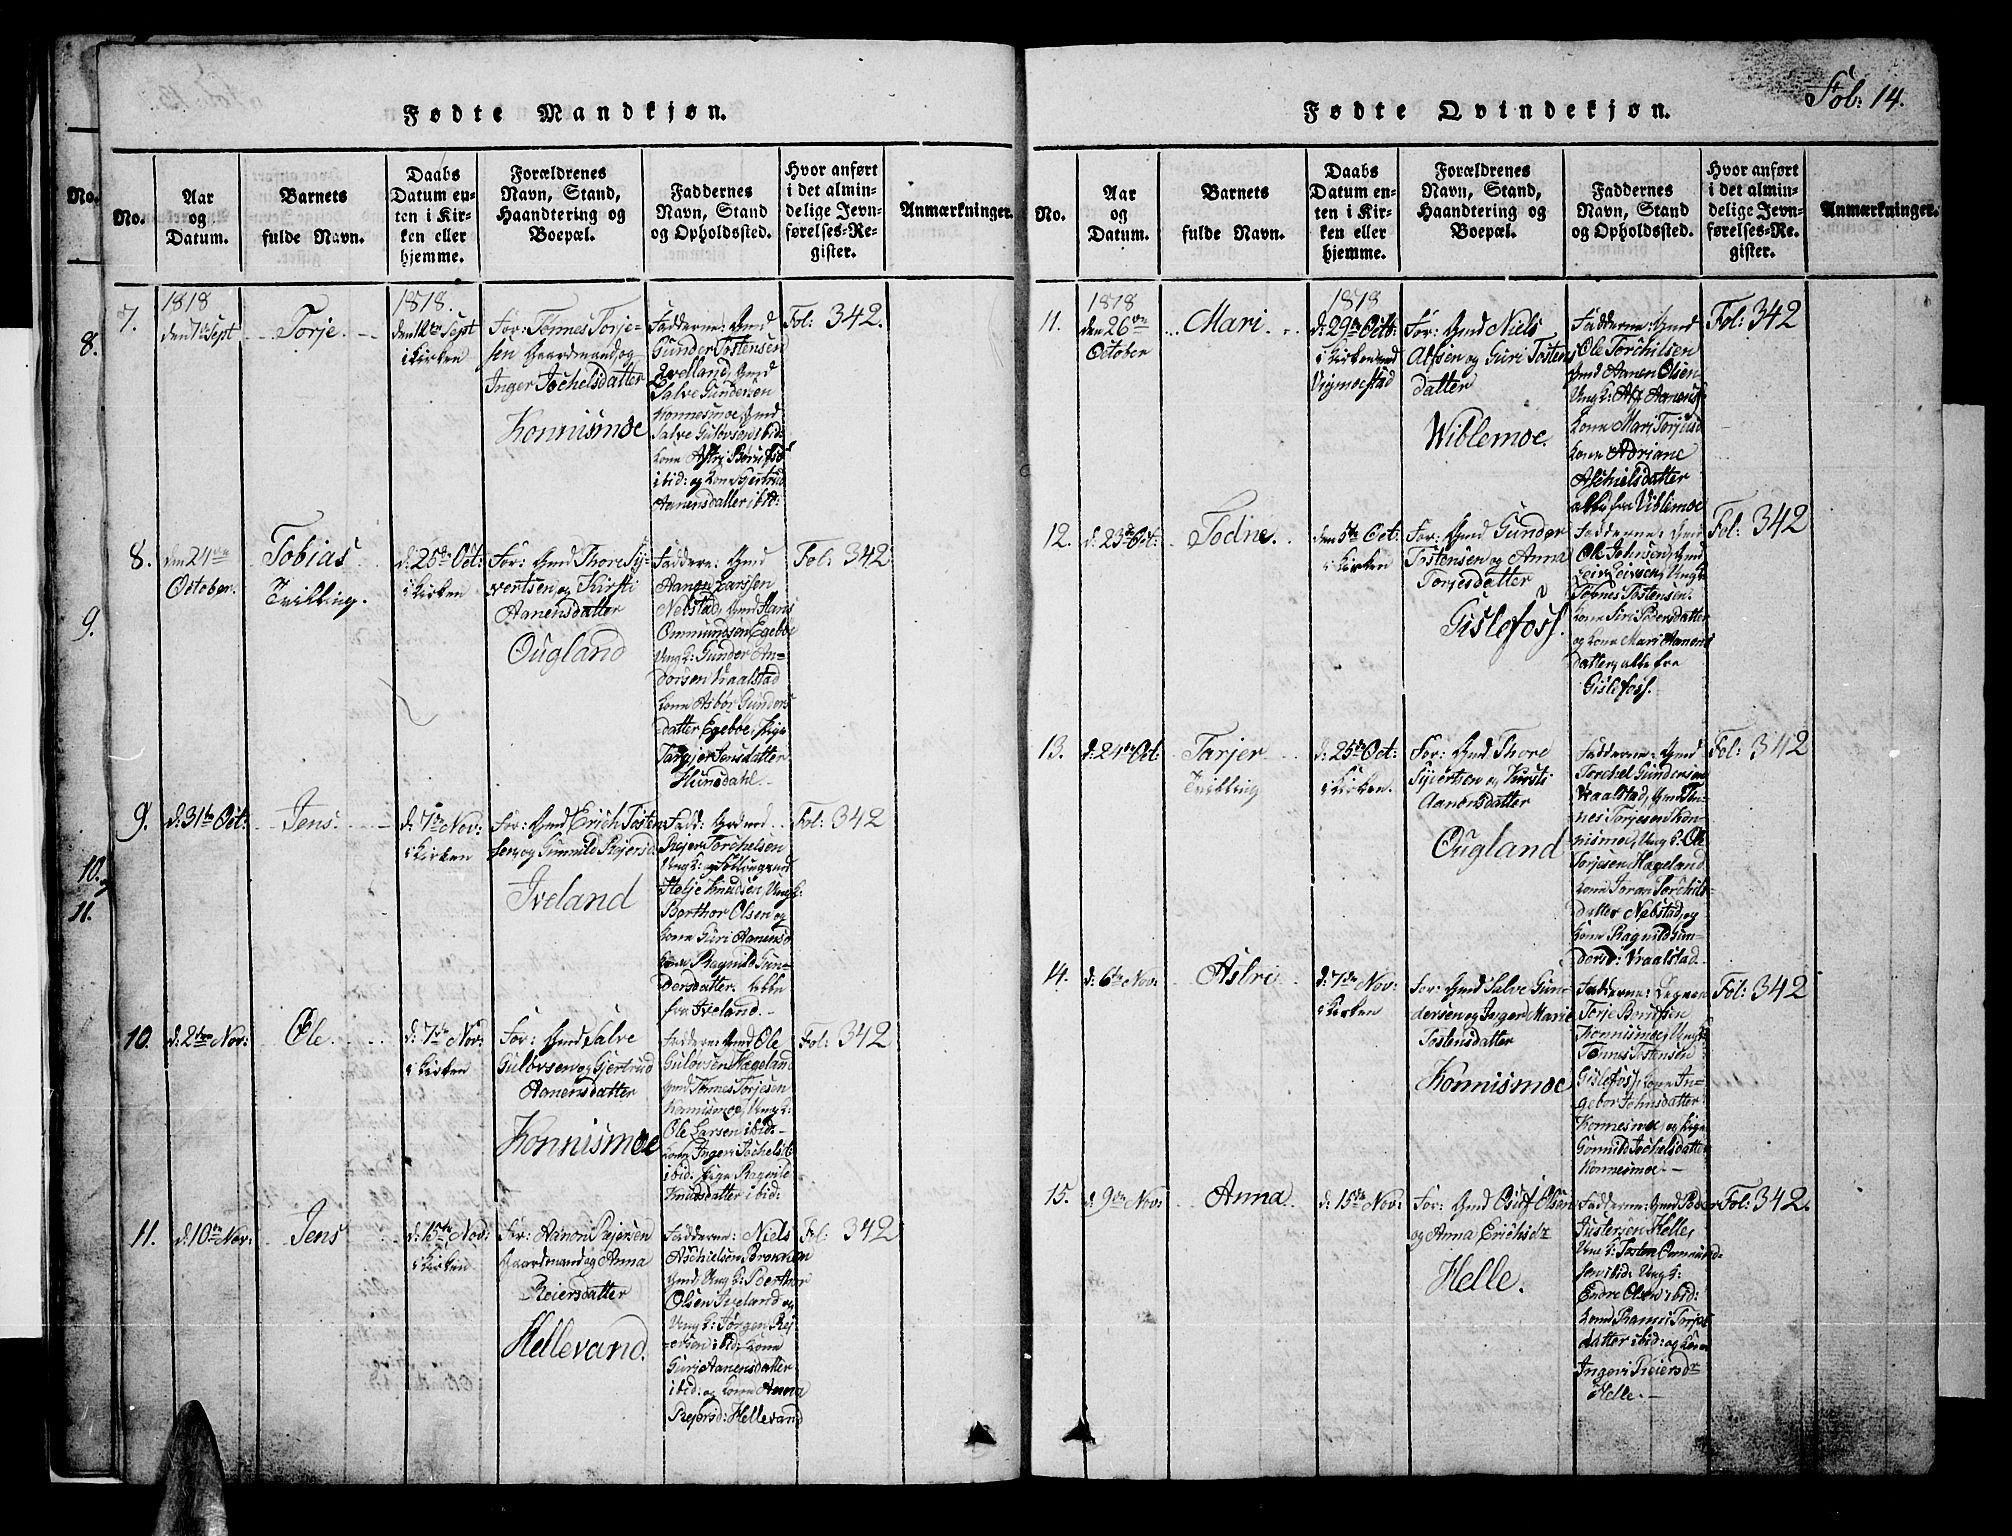 Fol: 14.
Fødte Mandkjøn.
No.
Aar
og
Datum.
Barnets
fulde Navn.
Daabs
Datum en-
ten i Kir-
ken eller
hjemme.
Forældrenes
Navn, Stand,
Haandtering og
Boepæl.
Faddernes
Navn, Stand
og Opholdssted.
Hvor anført
i det almin-
delige Jevn-
førelses-Re-
gister.
Anmærkninger.
7.
1818
den 7de Sept
Torje
1818.
den 12te Sept
i Kirken
For: Tønnes Torje-
sen Gaardmand og
Inger Jochelsdatter
Konnismoe
Fadderne: Gmd
Gunder Tostensen
Gmd
Salve Gundersen
Konnesmoe, Gmd
Salve Guløvsen ibid:
Kone Astri
ibid: og Kone Gjertrud
Aanensdatter ibid:
Fol: 342.
8.
den 24de
October
Tobias
Tvilling.
d: 25de Oct:
i Kirken
For: Gmd Thore Sy-
vertsen og Kirsti
Aanensdatter
Ougland
Faddere: Gmd
Aanen Larssen
Nebstad, Gmd Hans
Ommundsen Egeboe
Ungk: Gunder An-
dorsen Vraalstad
Kone Asbør Gunders
datter Egeboe, Pige
Targjer Jensdatter
Hunsdahl.
Fol: 342
9.
d: 31te Oct:
Jens.
d: 7de Nov:
i Kirken
For: Gmd Erich Tosten
sen og Gunnild Rejersd:
Iveland
Fadd:
Rejer Torchelsen
Helje Knudsen Ungk:
Berthor Olsen og
Kone Guri Aanensd
Kone Ragnild Gun-
dersdatter. alle
fra Iveland.
Fol: 342
10.
d: 2den Nov:
Ole
d: 7de Nov:
i Kirken
For: Gmd Salve
Guløvsen og Gjertrud
Aanensdatter
Konnismoe
Fadderne: Gmd Ole
Guløvsen Hageland
Gmd Tønnes Torjesen
Konnismoe, Ungk:
Ole Larsen ibid:
Kone Inger Jochelsd
ibid: Pige Ragnild
Knudsdatter ibid:
Fol: 342
11.
d: 10de Nov:
Jens
d: 15de Nov:
i Kirken
For: Aanon Rejersen
Gaardmand og Anna
Reiersdatter
Hellevand.
Fadderne: Niels
Aschielsen
Gmd, Ungk: Berthor
Olsen Iveland og
Ungk: Jørgen Rej-
ersen ibid: Kone
Guri Aanensdatter
ibid: og Kone Anna
Rejersd: Hellevand
Fol: 342
Fødte Qvindekjøn.
No.
Aar
og
Datum.
Barnets
fulde Navn.
Daabs
Datum en-
ten i Kir-
ken eller
hjemme.
Forældrenes
Navn, Stand,
Haandtering og
Boepæl.
Faddernes
Navn, Stand
og Opholdssted.
Hvor anført
i det almin-
delige Jevn-
førelses-Re-
gister.
Anmærkninger.
11.
1818
den 26de
October
Mari
1818
d: 29de Octo:
i Kirken ved
Vigmoestad
For: Gmd Niels
Alfsen og Guri Tostens
datter
Wiblemoe.
Fadderne: Gmd
Ole Torchilsen
Gmd Aanen Olsen
Ungk: Alf Aanens:
Kone Mari Torjesd
Kone Adriane
Aschielsdatter
alle fra Viblemoe
Fol: 342
12.
d: 23de Oct:
Todne.
den 5te Oct:
i Kirken
For: Gmd Gunder
Tostensen og Anna
Torjesdatter
Gislefoss.
Fadderne: Gmd
Ole Johnsen, Gmd
Leiv Leivsen, Ungk
Tønnes Tostensen.
Kone Siri Pedersdatter
og Kone Mari Aanens
datter, alle fra
Gislefoss.
Fol: 342
13.
d: 24de Oct:
Tarjer
Tvilling
d: 25de Oct:
i Kirken.
For: Gmd Thore
Syvertsen og Kirsti
Aanensdatter
Ougland
Fadderne: Gmd
Torchel Gundersen
Vraalstad, Gmd Tøn-
nes Torjesen Kon-
nismoe, Ungk: Ole
Torjesen Hageland
Kone Joran Torchils-
datter Nebstad, og
Kone Ragnild Gun-
dersd: Vraalstad.
Fol: 342
14.
d: 6te Nov:
Astri
d: 7de Nov:
i Kirken
For: Gmd Salve Gun-
dersen og Inger Marie
Tostensdatter
Konnismoe
Fadderne:
Torje Berntsen
Konnismoe, Ungk:
Tønnes Tostensen
Gislefoss, Kone In-
gebor Johnsdatter
Konnesmoe, og Pige
Gunnild Jochelsdatter
Konnesmoe.
Fol: 342
15.
d: 9de Nov:
Anna
d: 15de Nov:
For: Gmd Oluf Olsen
og Anna Erichsdr
Helle.
Fadderne: Gmd Peder
Helle,
Ungk: Tosten Ommund-
sen ibid: Ungk:
Endre Olsen ibid:
Kone Ranni Torjes
datter ibid: og Kone
Ingeri Reiersdr
Helle.
Fol: 342.
No.
8.
9.
10.
11.